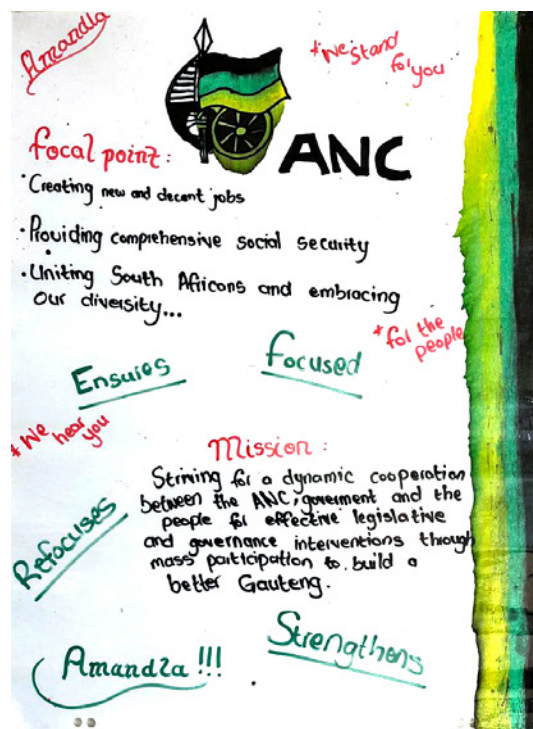 Amandla
+ We stand
for you
ANC
focal point :
• Creating new and decent jobs
• Providing comprehensive social security
• Uniting South Africans and embracing
our diversity...
* for the
people
Ensures
focused
+ We hear
you
Mission :
Striving for a dynamic cooperation
between the ANC, goverment and the
people for effective legislative
and governance interventions through
mass participation to build a
better Gauteng.
Refocuses
Strengthens
Amandla !!!